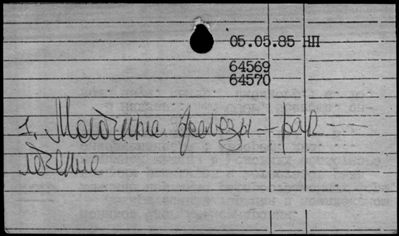 05.05.85 НП
64569
64570
1. Молочные железы — рак —
лечение